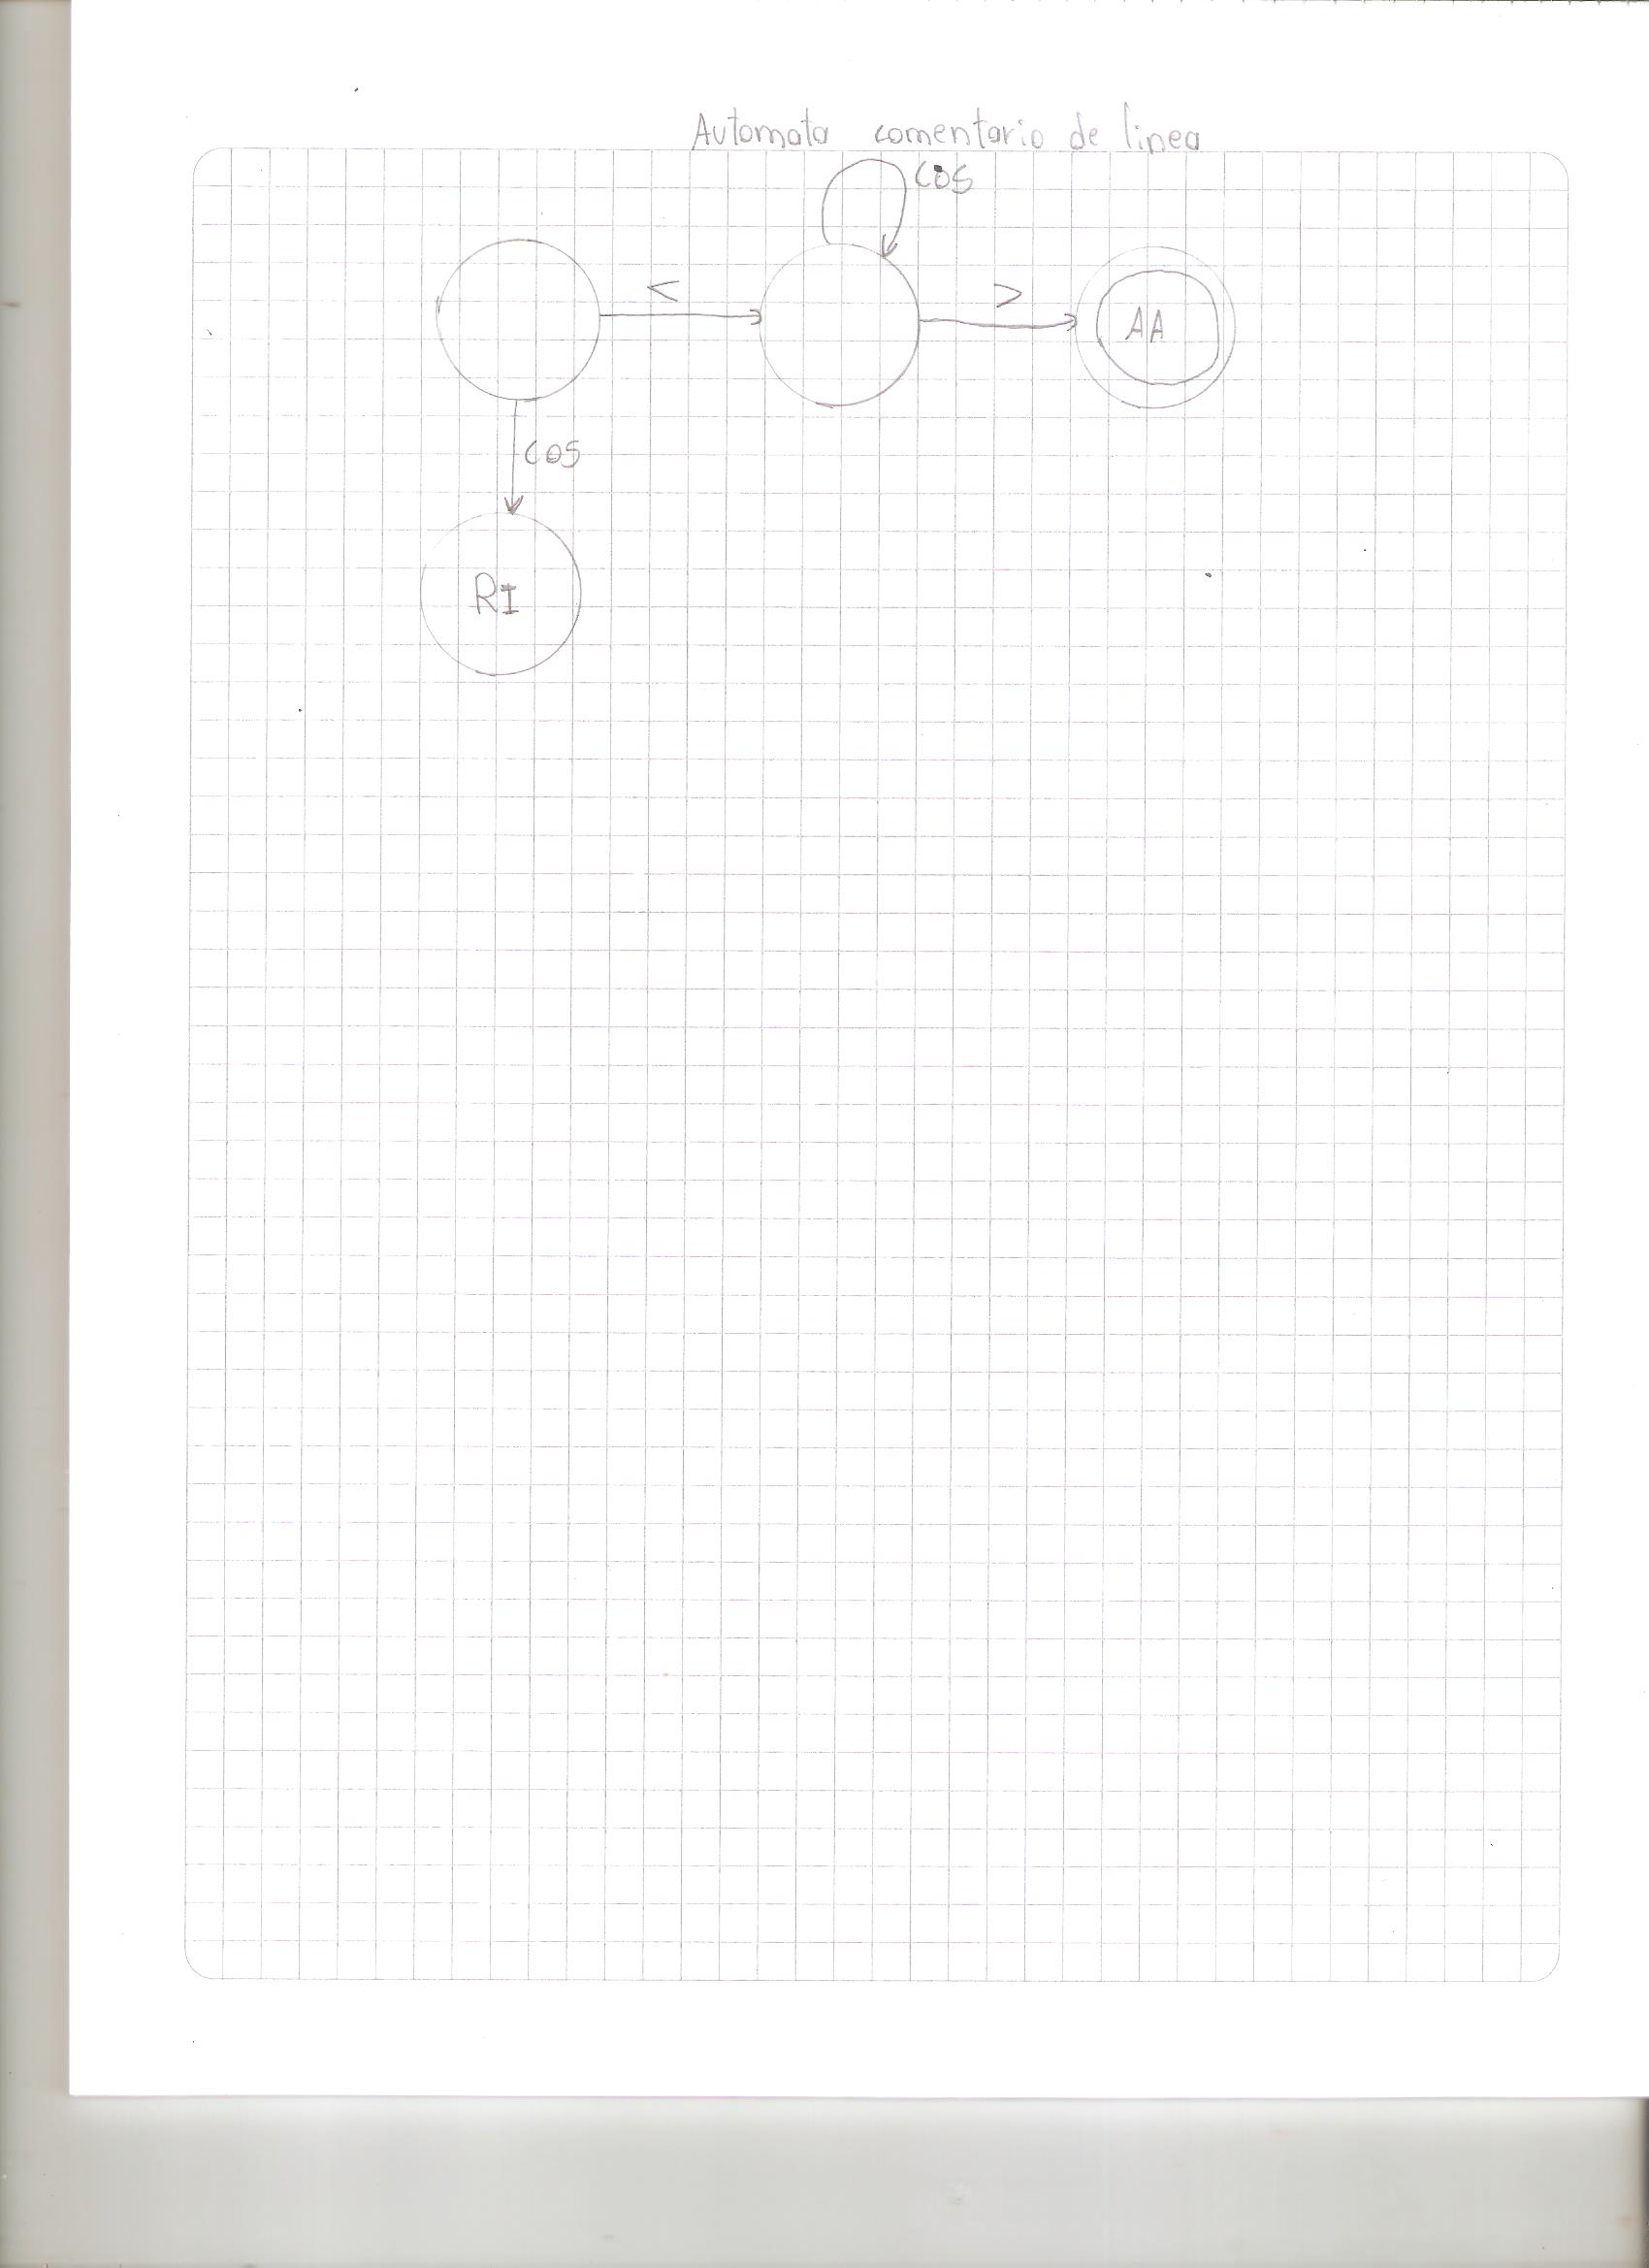 Automata comentario de linea
COS
< >
AA
COS
RI